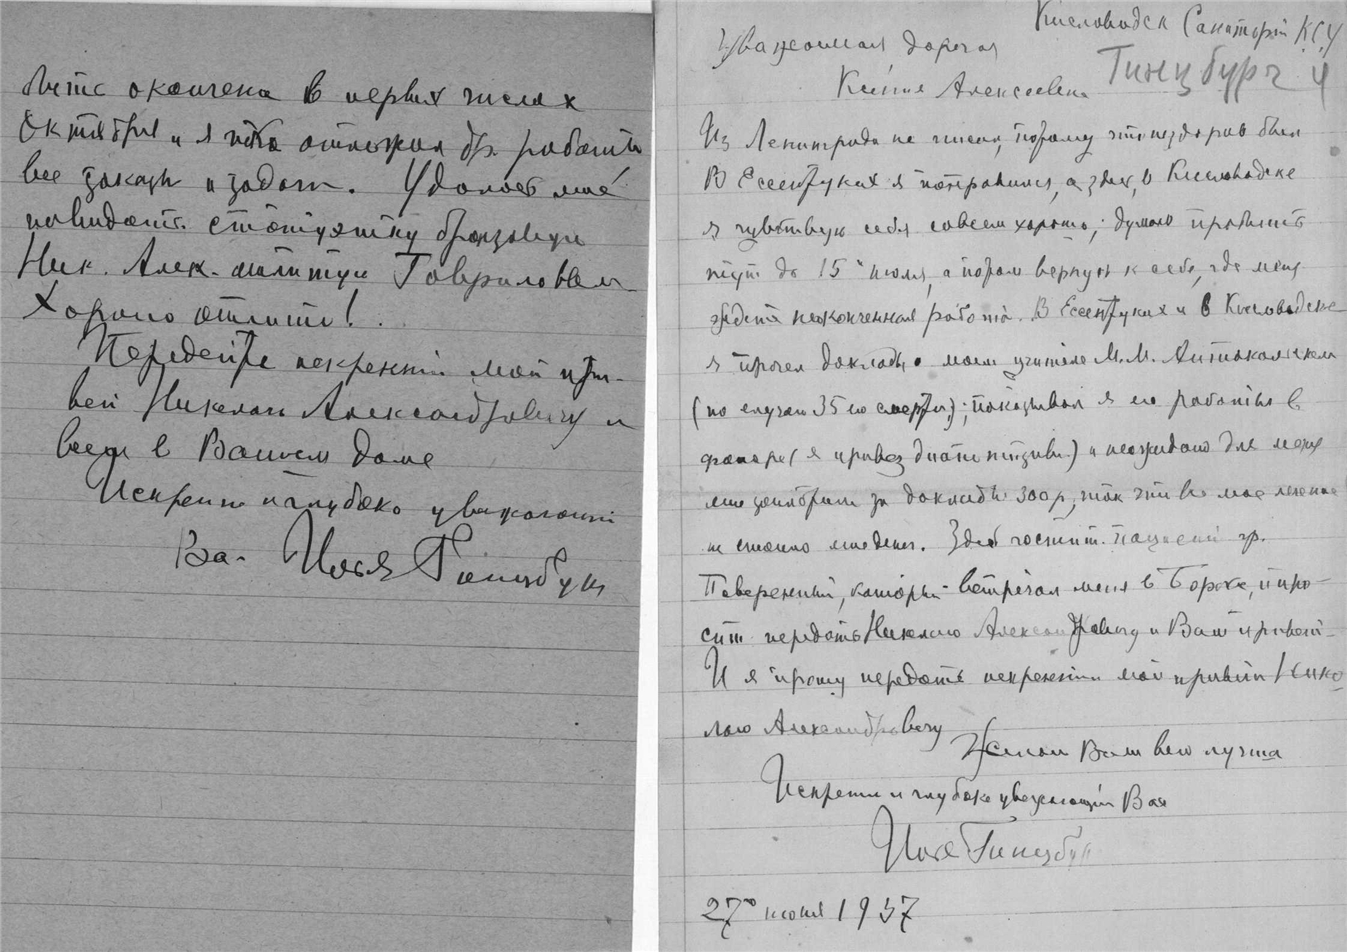 быть окончена в первых числах
Октября и я пока отложил др. работы
все заказы и задачи. Удалось мне
повидать статуэтку бронзовую
Ник. Алек. отлитую Гавриловым
Хорошо отлито!
Передайте искренний мой при-
вет Николаю Александровичу и
всем в Вашем доме
Искренно и глубоко уважающий
Вас Илья Гинцбург
Кисловодск Санаторий КСУ
Уважаемая, дорогая
Гинцбург 4
Ксения Алексеевна
Из Ленинграда не писал, потому что нездоров был
В Ессентуках я поправился, а здесь, в Кисловодске
я чувствую себя совсем хорошо; думаю пробыть
тут до 15 июля, а потом вернусь к себе, где меня
ждет неоконченная работа. В Ессентуках и в Кисловодске
я прочел доклады о моем учителе М. М. Антокольском
(по случаю 35 его смерти); показывал я его работы в
фонаре (я привез диапозитивы) и неожиданно для меня
мне заплатили за доклады 300 р, так что все мое лечение
не стоило мне денег. Здесь гостит пр.
который встречал меня в и про-
сит передать Николаю Александровичу и Вам привет.
И я прошу передать искренний мой привет Нико-
лаю Александровичу
Желаю Вам всего лучшего
Искренно и глубоко уважающий Вас
Илья Гинцбург
27го июня 1937